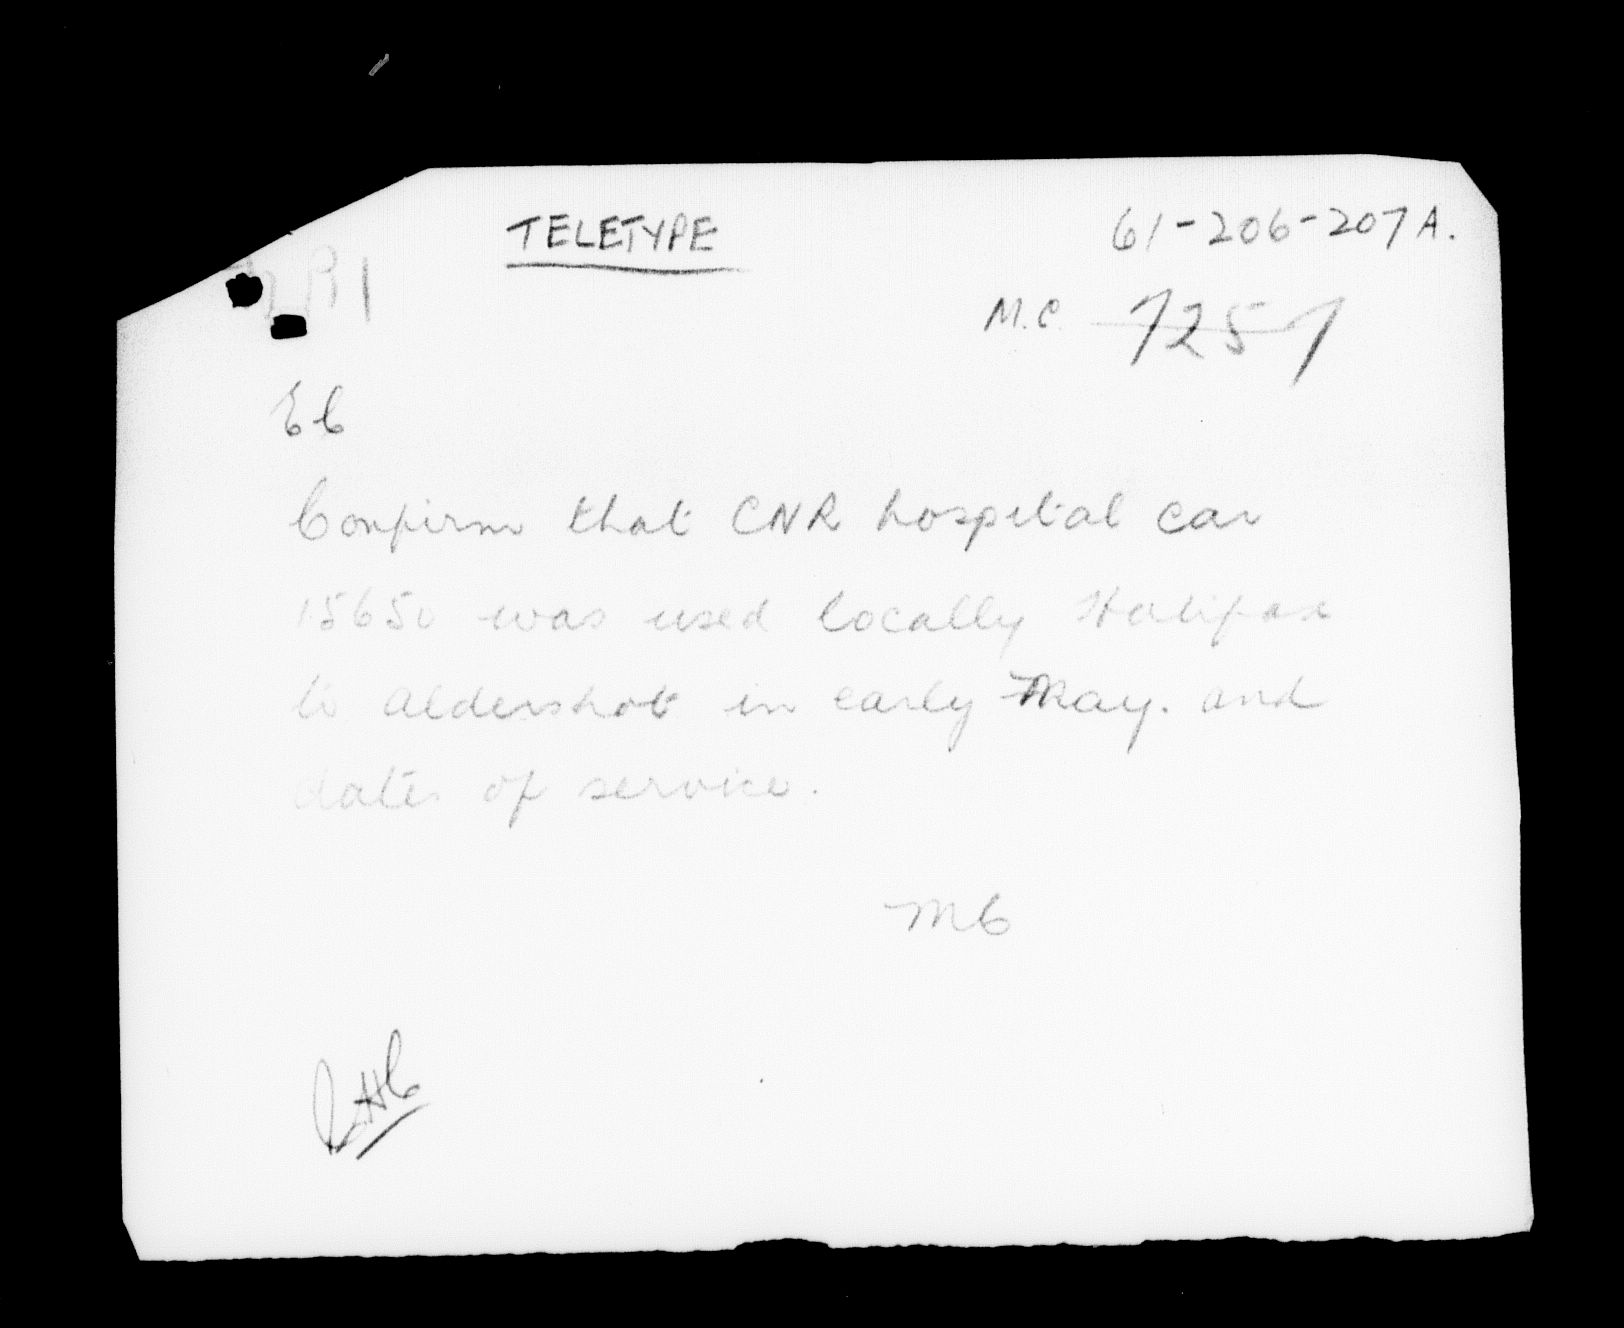 TELETYPE
61-206-207A.
M.C. 7257
EC
Confirm that CNR hospital car
15650 was used locally Halifax
to Aldershot in early May. and
dates of service.
MC